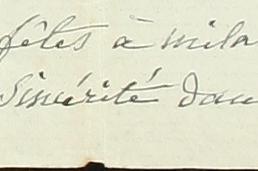 fêtes à mila
Sincérité dan